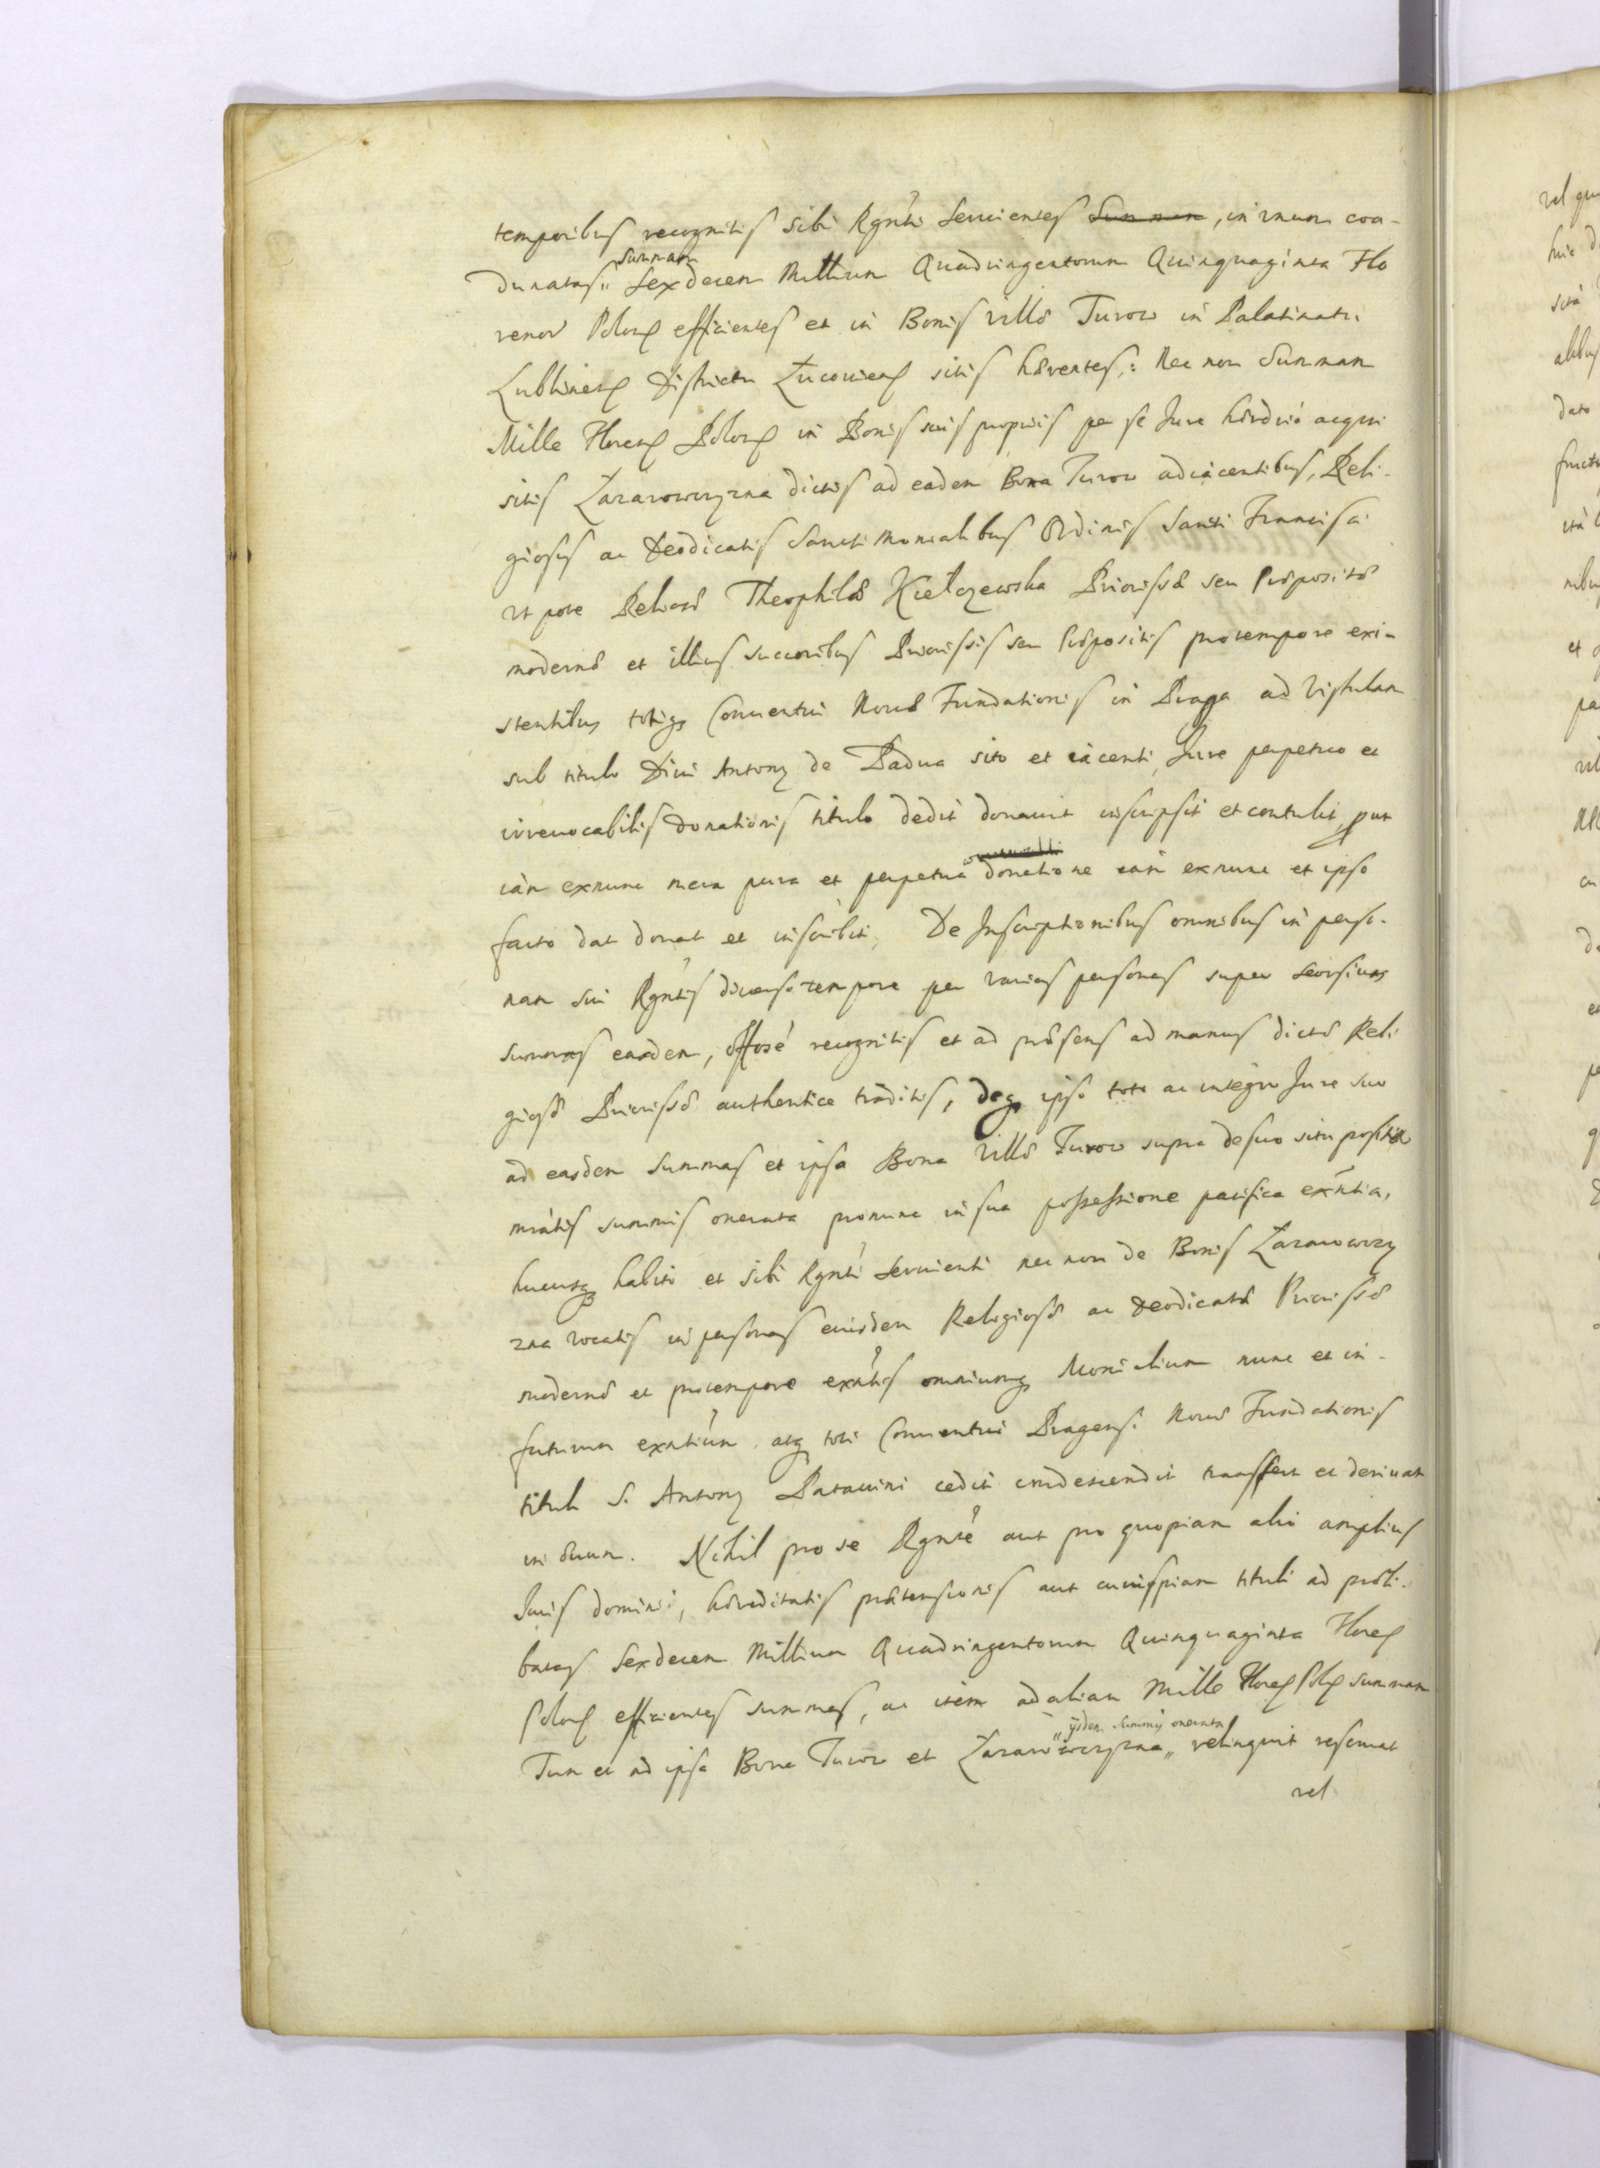 temporibus recognitis sibi Rgnti seruientes Summam, in vnum coa-
dunatas „ summam Sexdecem Millium Quadringentorum Quinquaginta Flo
renor Polon efficientes et in Bonis Villæ Turow in Palatinatu
Lublinen Districtu Lucouien sitis hærentes: Nec non Summam
Mille Floren Polon in Bonis suis propriis per se Jure hærdrio acqui
sitis Zararowczyzna dictis ad eadem Bona Turow adiacentibus, Reli-
giosis ac Deodicatis Sanctimonialibus Ordinis Sancti Francisci
vt pote Religiosæ Theophilæ Kiełczewska Priorissæ seu Præpositæ
modernæ et illius succoribus Priorissis seu Præpositis protempore exi-
stentibus totiq Conuentui Nouæ Fundationis in Praga ad Vistulam
sub titulo Diui Antony de Padua sito et iacenti, Jure perpetuo et
irreuocabilis donationis titulo dedit donauit inscripsit et contulit, prout
iàm exnunc mera pura et perpetua donatione iam exnunc et ipso
facto dat donat et inscribit, De Inscriptionibus omnibus in perso-
nam sui Rgntis diuerso tempore per varias personas super seorsiuas
summas easdem, offosé recognitis et ad præsens ad manus dictæ Reli
giosæ Priorissæ authentice traditis, deq ipso toto ac integro Jure suo
ad easdem Summas et ipsa Bona Villæ Turow supra de suo situ posita
mratis summis onerata pronunc in sua possessione pacifica exntia,
hucusq habito et sibi Rgnti seruienti nec non de Bonis Zararowczy
zna vocatis in personas eiusdem Religiosæ ac Deodicatæ Priorissæ
modernæ et protempore exntis omniumq Monialium nunc et in-
futurum exntium atq toti Conuentui Pragensi Nouæ Fundationis
tituli S. Antony Patauini cedit condescendit transfert et deriuat
in æuum. Nihil pro se Rgnte aut pro quopiam alio amplius
Juris dominii, hæreditatis prætensionis aut cuiuspiam tituli ad præli-
batas Sexdecem Millium Quadringentorum Quinquaginta Floren
Polon efficientes summas, ac item ad aliam Mille Floren Poln summam
Tum et ad ipsa Bona Turow et Zararowczyzna „ ijsdem summis onerata „ relinquit reseruat
vel